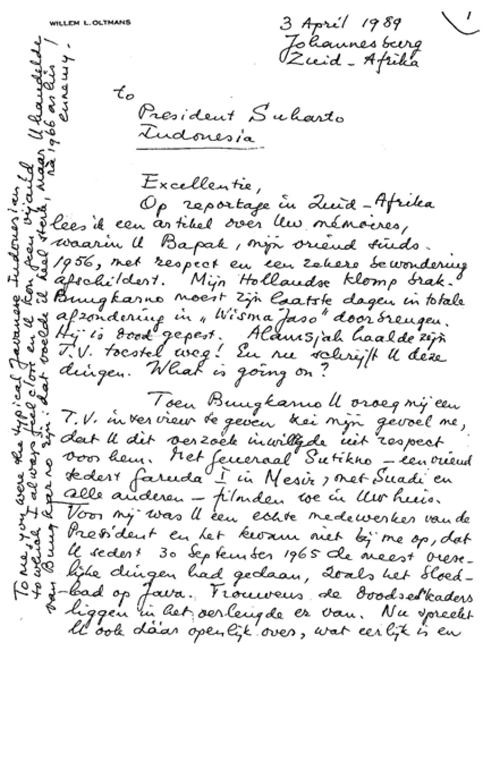 WILLEM L. OLTMANS
1
3 April 1989
Johannesburg
Zuid-Afrika
to
President Suharto
Indonesia
Excellentie,
Op reportage in Zuid-Afrika
lees ik een artikel over Uw mémoires,
waarin U Bapak, mijn vriend sinds
1956, met respect en een zekere bewondering
afschildert. Mijn Hollandse klomp brak.
Bungkarno moest zijn laatste dagen in totale
afzondering in „Wisma Jaso" doorbrengen.
Hij is dood gepest. Alamsjah haalde zijn
T.V. toestel weg! En nu schrijft U deze
dingen. What is going on?
Toen Bungkarno U vroeg mij een
T.V. interview te geven zei mijn gevoel me,
dat U dit verzoek inwilligde uit respect
voor hem. Met Generaal Sutikno – een vriend
sedert Garuda I in Mesir, met Suadi en
alle anderen – filmden we in Uw huis.
Voor mij was U een echte medewerker van de
President en het kwam niet bij me op, dat
U sedert 30 September 1965 de meest vrese-
lijke dingen had gedaan, zoals het bloed-
bad op Java. Trouwens de doodseskaders
liggen in het verlengde er van. Nu spreekt
U ook dáár openlijk over, wat eerlijk is en
To me, you were the typical Javanese Indonesian,
to which I always feel close en U kon geen vijand
van Bungkarno zijn: dat voelde ik heel sterk, maar U handelde
na 1966 as his
ennemy. !